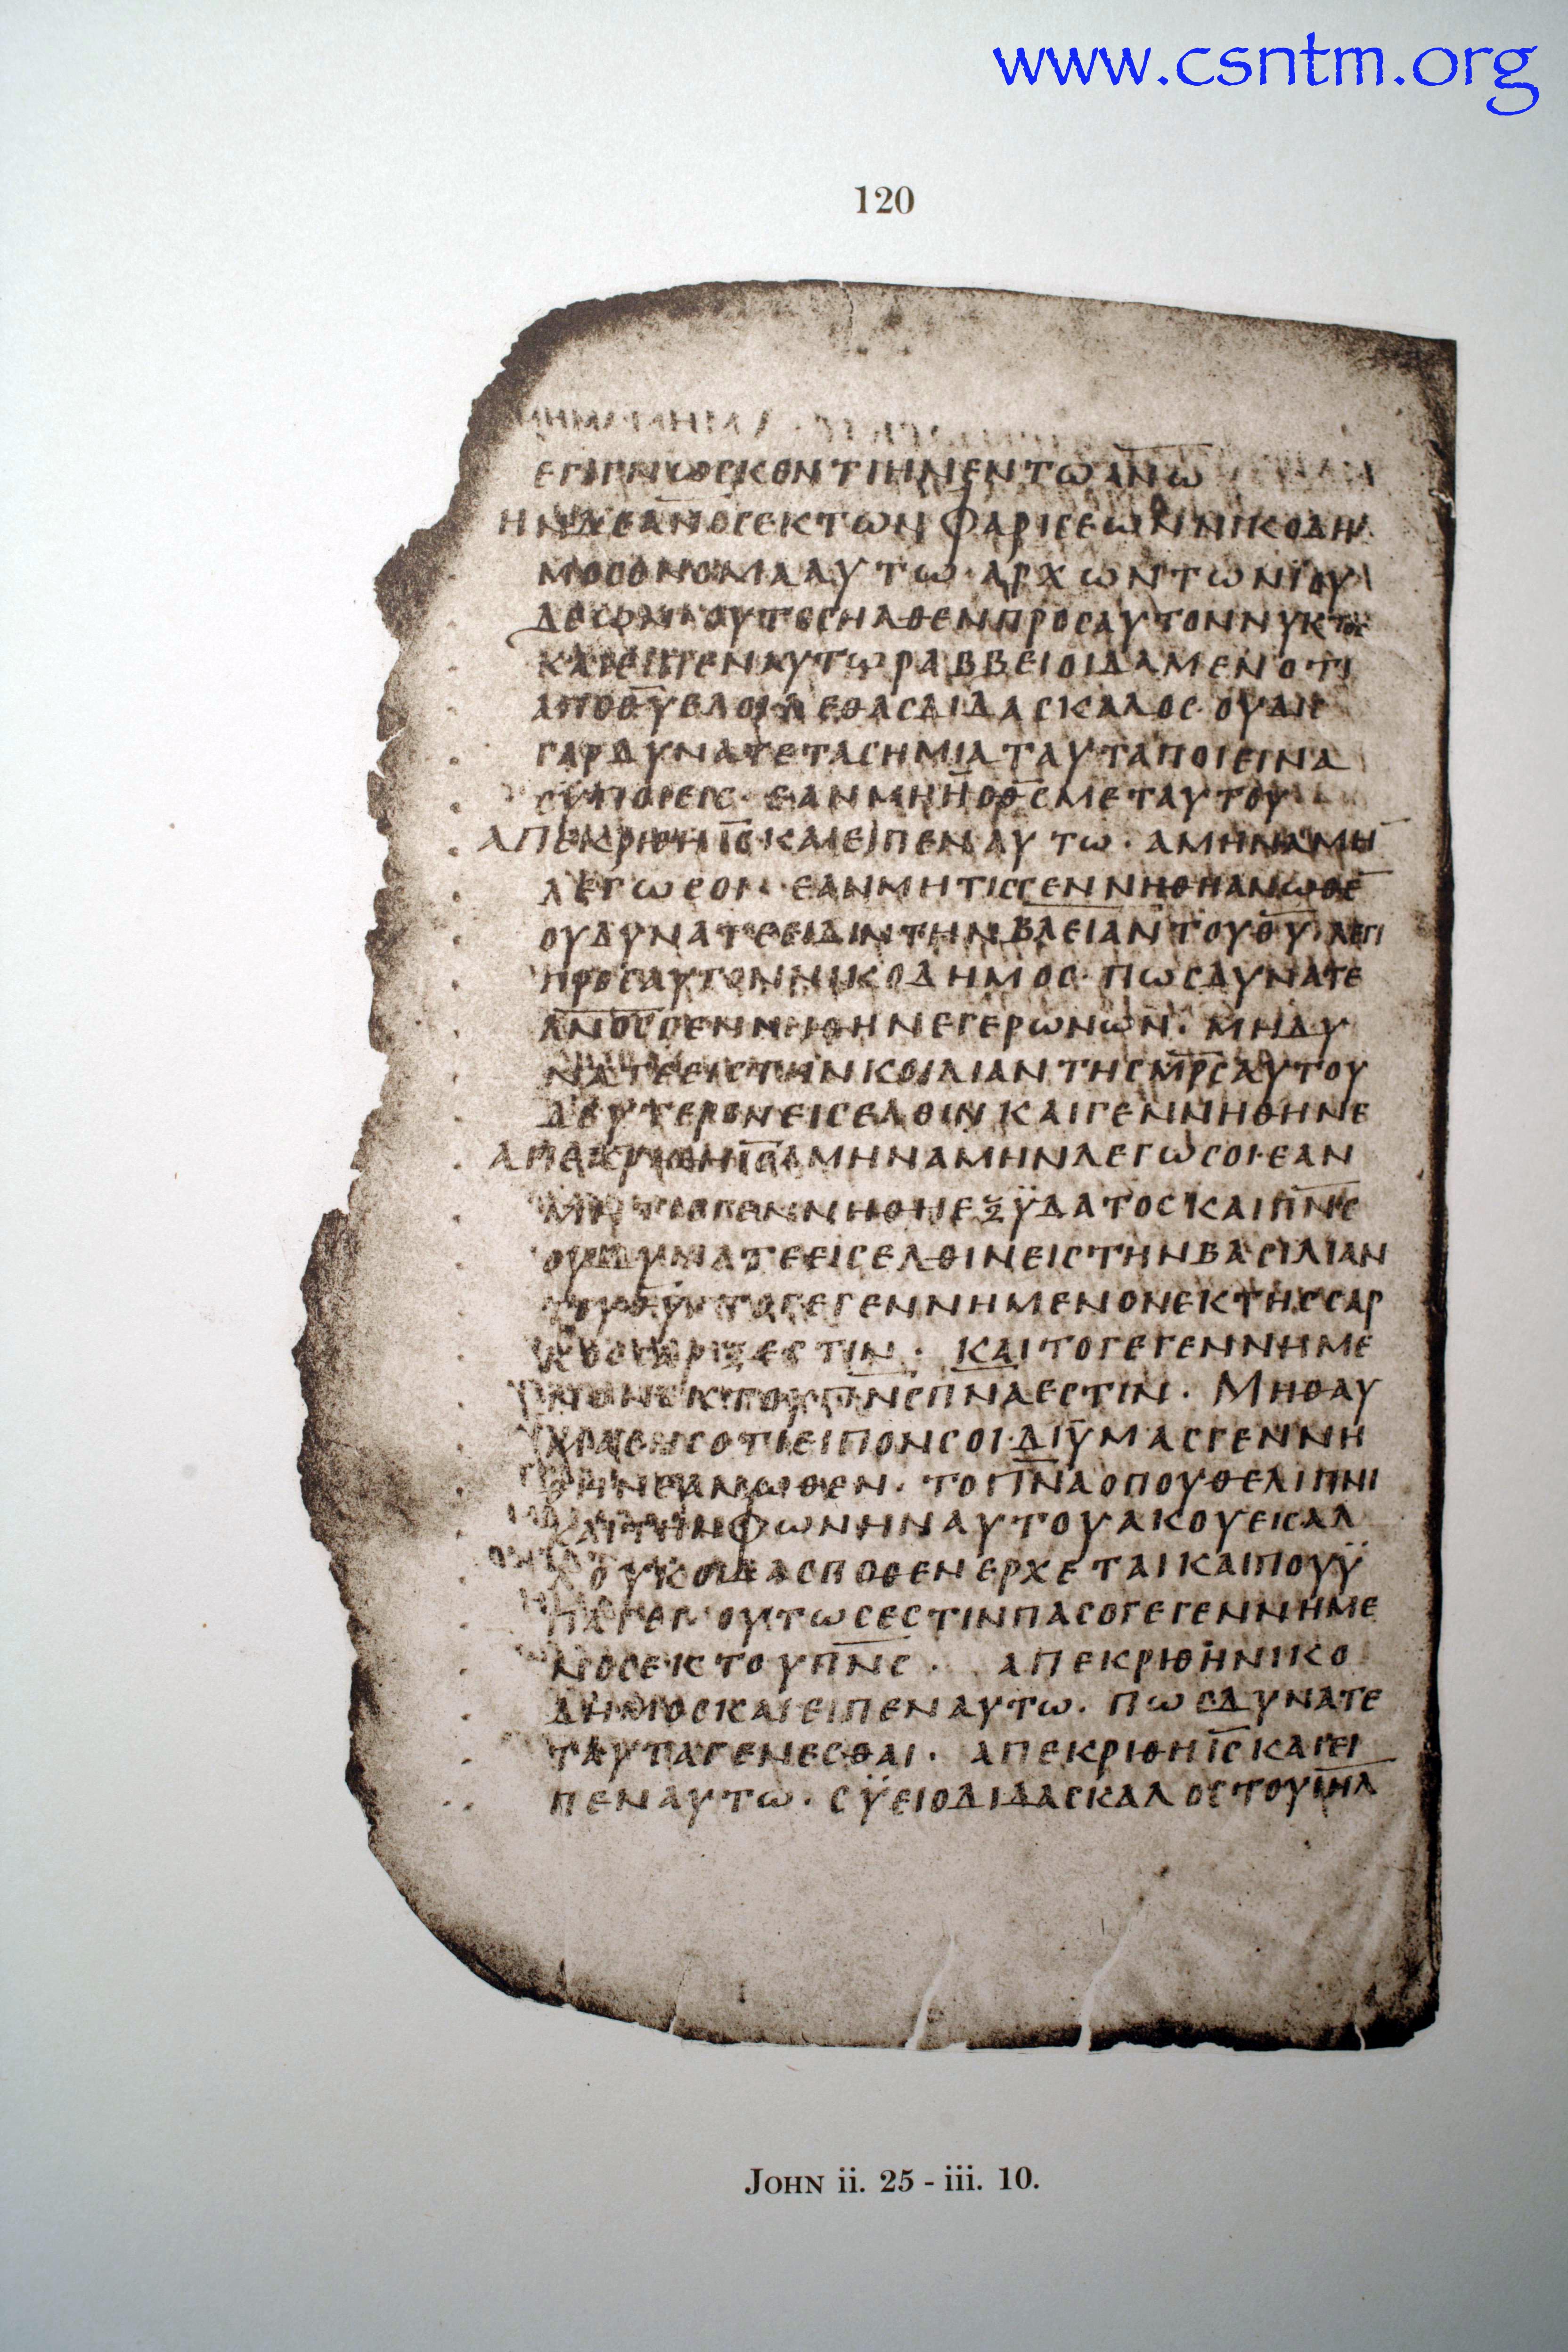 www.csntm.org
120
ΕΓΙΓΝωϹΚΟΝΤΙΗΝΕΝΤωΑΝω
ΗΝΔΕΑΝΟϹΕΚΤωΝΦΑΡΙϹΕωΝΝΙΚΟΔΗ
ΜΟϹΟΝΟΜΑΑΥΤω·ΑΡΧωΝΤωΝΙΟΥ
ΗΛΘΕΝΠΡΟϹΑΥΤΟΝΝΥΚΤΟϹ
ΚΑΙΕΙΠΕΝΑΥΤωΡΑΒΒΕΙΟΙΔΑΜΕΝΟΤΙ
ΔΙΔΑϹΚΑΛΟϹ·ΟΥΔΙϹ
ΓΑΡΔΥΝΑΤΕΤΑϹΗΜΙΑΤΑΥΤΑΠΟΙΕΙΝΑ
ϹΥΠΟΙΕΙϹ·ΕΑΝΜΗΗΟΘϹΜΕΤΑΥΤΟΥ
ΑΠΕΚΡΙΘΗΙϹΚΑΙΕΙΠΕΝΑΥΤω·ΑΜΗΝΑΜΗ
ΛΕΓωϹΟΙ·ΕΑΝΜΗΤΙϹΓΕΝΝΗΘΗΑΝωΘΕ
ΟΥΔΥΝΑΤΕΕΙΔΙΝΤΗΝΒΛΕΙΑΝΤΟΥΘΥ ΛΕΓΙ
ΠΡΟϹΑΥΤΟΝΝΙΚΟΔΗΜΟϹ·ΠωϹΔΥΝΑΤΕ
ΑΝΟϹΓΕΝΝΗΘΗΝΕΓΕΡωΝωΝ·ΜΗΔΥ
ΝΑΤΕΕΙϹΤΗΝΚΟΙΛΙΑΝΤΗϹΜΡϹΑΥΤΟΥ
ΔΕΥΤΕΡΟΝΕΙϹΕΛΘΙΝΚΑΙΓΕΝΝΗΘΗΝΕ
ΑΠΕΚΡΙΘΗΙϹΑΜΗΝΑΜΗΝΛΕΓωϹΟΙ·ΕΑΝ
ΜΗΤΙϹΓΕΝΝΗΘΗΕΞΫΔΑΤΟϹΚΑΙΠΝϹ
ΟΥΔΥΝΑΤΕΕΙϹΕΛΘΙΝΕΙϹΤΗΝΒΑϹΙΛΙΑΝ
ΤΟΥΘΥ·ΤΟΓΕΓΕΝΝΗΜΕΝΟΝΕΚΤΗϹϹΑΡ
ΚΟϹϹΑΡΞΕϹΤΙΝ· ΚΑΙΤΟΓΕΓΕΝΝΗΜΕ
ΝΟΝΕΚΤΟΥΠΝϹΠΝΑΕϹΤΙΝ· ΜΗΘΑΥ
ΟΤΙΕΙΠΟΝϹΟΙ·ΔΙΫΜΑϹΓΕΝΝΗ
ΘΗΝΕΑΝωΘΕΝ·ΤΟΠΝΑΟΠΟΥΘΕΛΙΠΝΙ
ΚΑΙΤΗΝΦωΝΗΝΑΥΤΟΥΑΚΟΥΕΙϹΑΛ
ΟΥΚΟΙΔΑϹΠΟΘΕΝΕΡΧΕΤΑΙΚΑΙΠΟΥΫ
ΠΑΓΕΙ·ΟΥΤωϹΕϹΤΙΝΠΑϹΟΓΕΓΕΝΝΗΜΕ
ΝΟϹΕΚΤΟΥΠΝϹ· ΑΠΕΚΡΙΘΗΝΙΚΟ
ΔΗΜΟϹΚΑΙΕΙΠΕΝΑΥΤω·ΠωϹΔΥΝΑΤΕ
ΤΑΥΤΑΓΕΝΕϹΘΑΙ· ΑΠΕΚΡΙΘΗΙϹΚΑΙΕΙ
ΠΕΝΑΥΤω·ϹΫΕΙΟΔΙΔΑϹΚΑΛΟϹΤΟΥΙΗΛ
JOHN ii. 25 - iii. 10.